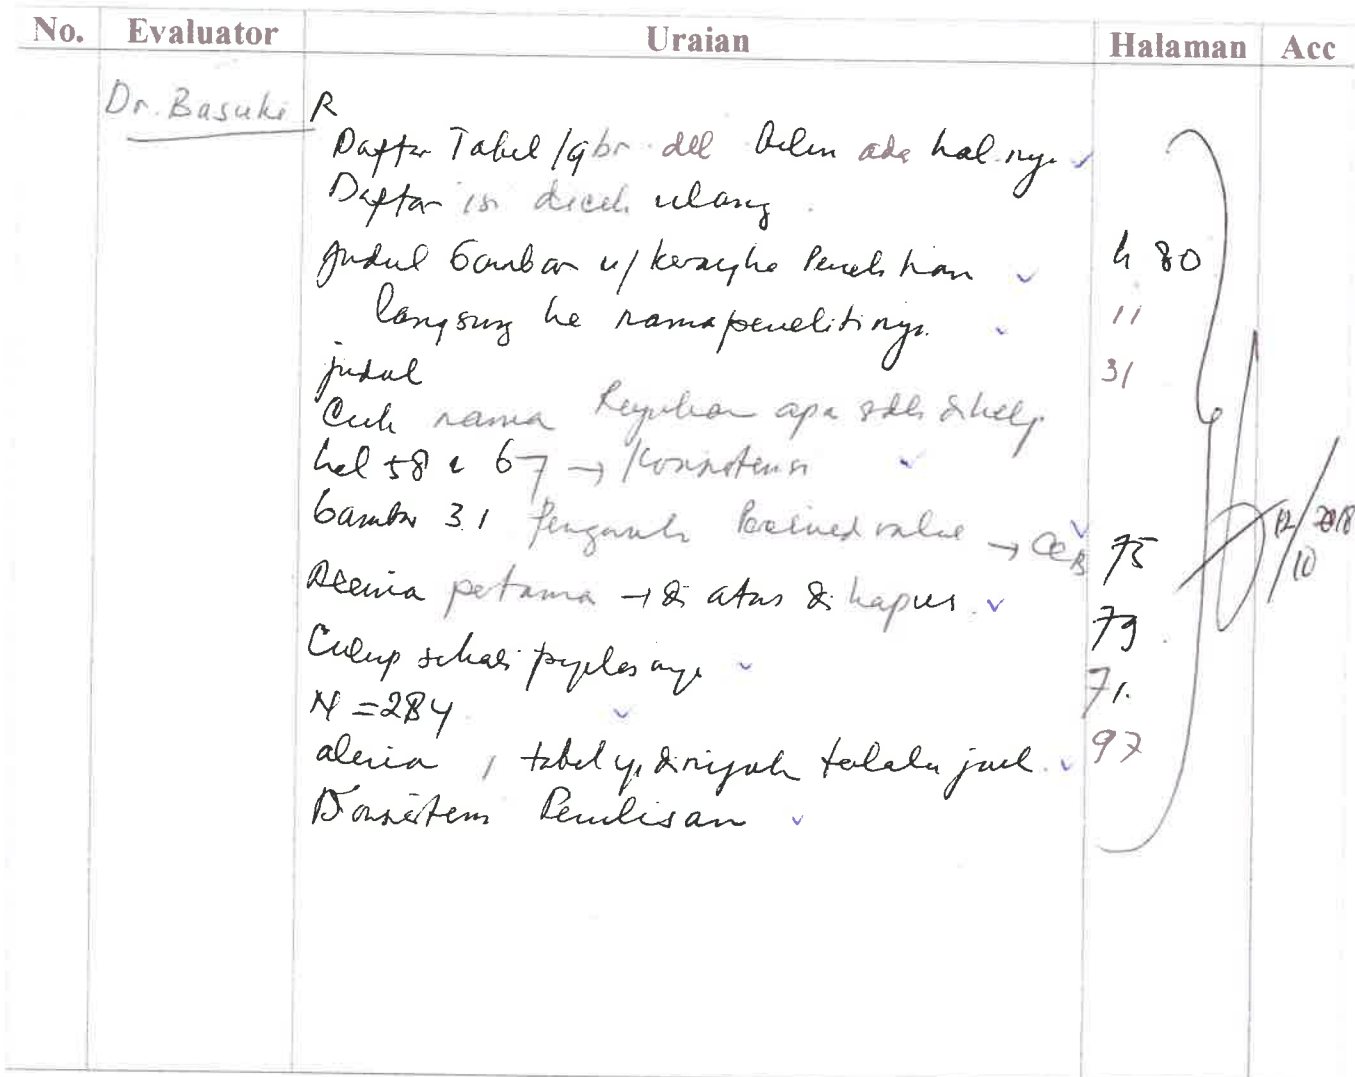 No. Evaluator Uraian Halaman Acc
Dr. Basuki R
Daftar Tabel/gbr dll belum ada hal.nya
Daftar isi dicek ulang.
Judul Gambar u/ kerangka Penelitian h 80
langsung ke nama penelitinya. 11
judul 31
Cek nama Rujukan apa sdh
hal 58 & 67 → Konsistensi
Gambar 3.1 Pengaruh Perceived value → 75
Alenia pertama → di atas dihapus. 79
Cukup sekali penjelasannya 71.
N = 284 97
alenia, tabel yg dirujuk terlalu jauh.
Konsistensi Penulisan
12/10 2018